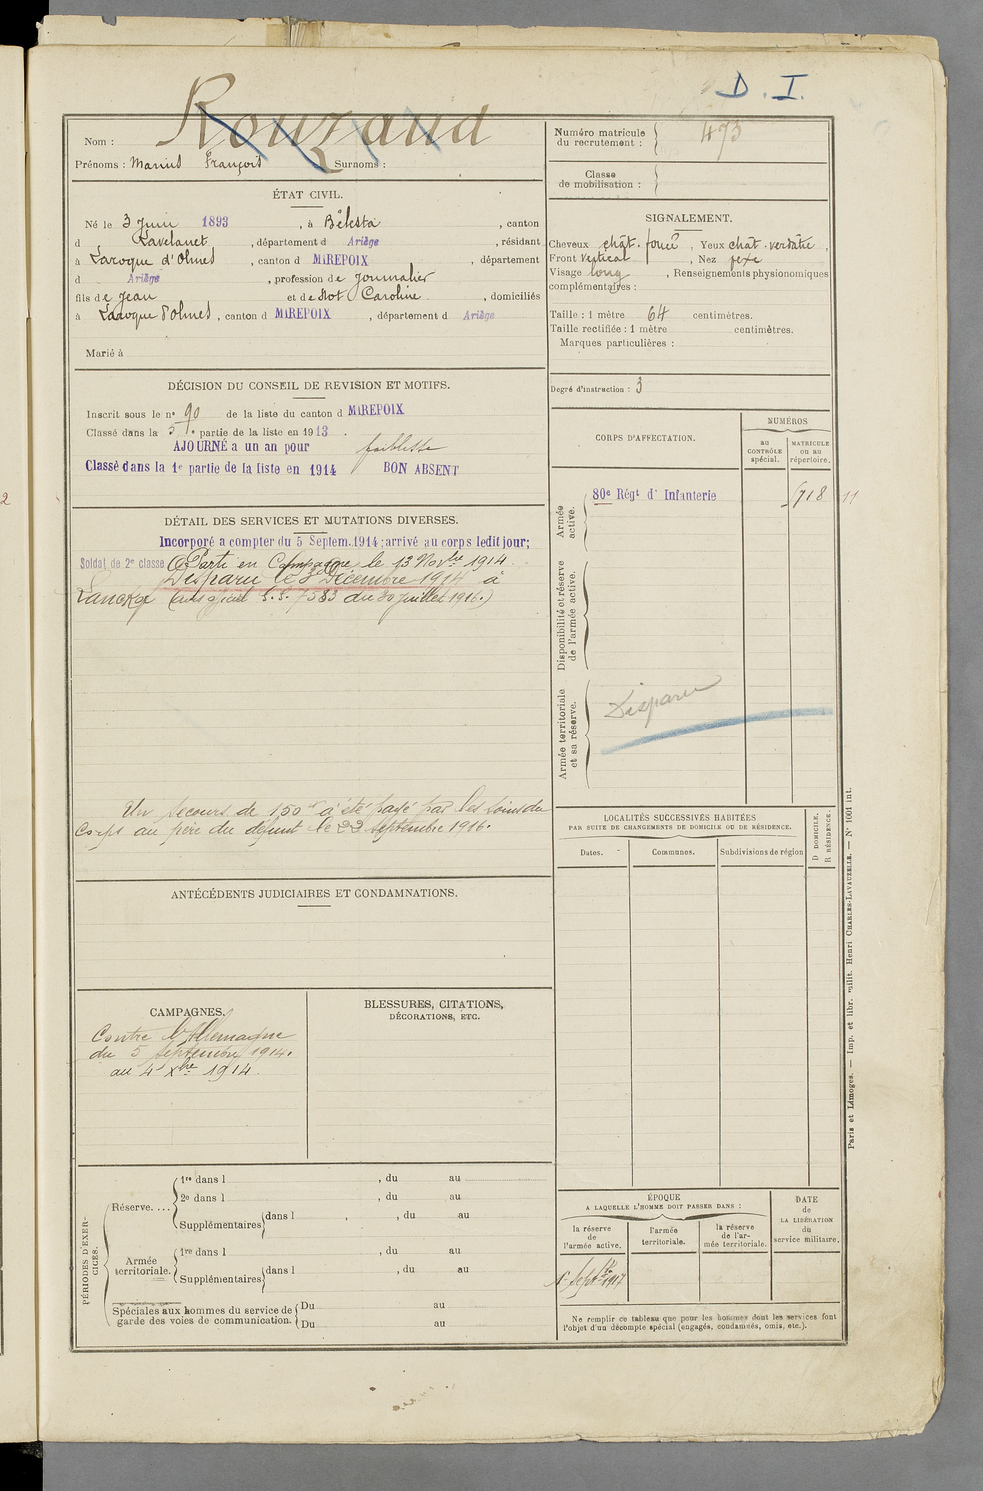 D. I.
Nom : Rouzaud
Prénoms : Marius François Surnoms :
Numéro matricule du recrutement : 473
Classe de mobilisation :
ÉTAT CIVIL.
Né le 3 Juin 1893, à Bélesta, canton
d Lavelanet, département d Ariège, résidant
à Laroque d'Olmes, canton d MIREPOIX, département
d Ariège, profession de journalier
fils de Jean et de Not Caroline, domiciliés
à Laroque d'olmes, canton d MIREPOIX, département d Ariège
Marié à
SIGNALEMENT.
Cheveux chât. foncé, Yeux chat. verdâtre,
Front vertical, Nez
Visage long, Renseignements physionomiques
complémentaires :
Taille : 1 mètre 64 centimètres.
Taille rectifiée : 1 mètre centimètres.
Marques particulières :
Degré d'instruction : 3
DÉCISION DU CONSEIL DE REVISION ET MOTIFS.
Inscrit sous le nº 90 de la liste du canton d MIREPOIX
Classé dans la 5e partie de la liste en 1913.
AJOURNÉ a un an pour faiblesse
Classé dans la 1e partie de la liste en 1914 BON ABSENT
DÉTAIL DES SERVICES ET MUTATIONS DIVERSES.
Incorporé a compter du 5 Septem. 1914; arrivé au corps ledit jour;
Soldat de 2e classe Parti en Campagne le 13 Novbre 1914.
Disparu le Décembre 1914 à
(avis officiel 583 du 30 juillet 1916.)
Un secours de 150f a été payé par les soins du
Corps au père du défunt le 22 septembre 1916.
ANTÉCÉDENTS JUDICIAIRES ET CONDAMNATIONS.
CAMPAGNES.
Contre l'Allemagne
du 5 septembre 1914.
au 4 Xbre 1914.
BLESSURES, CITATIONS,
DÉCORATIONS, ETC.
PÉRIODES D'EXERCICES.
Réserve....
1re dans l , du au
2e dans l , du au
Supplémentaires dans l , , du au
Armée territoriale.
1re dans l , du au
Supplémentaires dans l , du au
Spéciales aux hommes du service de garde des voies de communication.
Du au
Du au
CORPS D'AFFECTATION.
NUMÉROS
au CONTRÔLE spécial.
MATRICULE ou au répertoire.
Armée active.
80e Régt d' Infanterie 718 11
Disponibilité et réserve de l'armée active.
Armée territoriale et sa réserve.
Disparu
LOCALITÉS SUCCESSIVES HABITÉES
PAR SUITE DE CHANGEMENTS DE DOMICILE OU DE RÉSIDENCE.
D DOMICILE.
R RÉSIDENCE.
Dates. Communes. Subdivisions de région
ÉPOQUE
A LAQUELLE L'HOMME DOIT PASSER DANS :
la réserve de l'armée active.
l'armée territoriale.
la réserve de l'armée territoriale.
DATE de LA LIBÉRATION du service militaire.
1er Septbre 1917
Ne remplir ce tableau que pour les hommes dont les services font
l'objet d'un décompte spécial (engagés, condamnés, omis, etc.).
Paris et Limoges. — Imp. et libr. milit. Henri CHARLES-LAVAUZELLE. — Nº 1001 int.
2